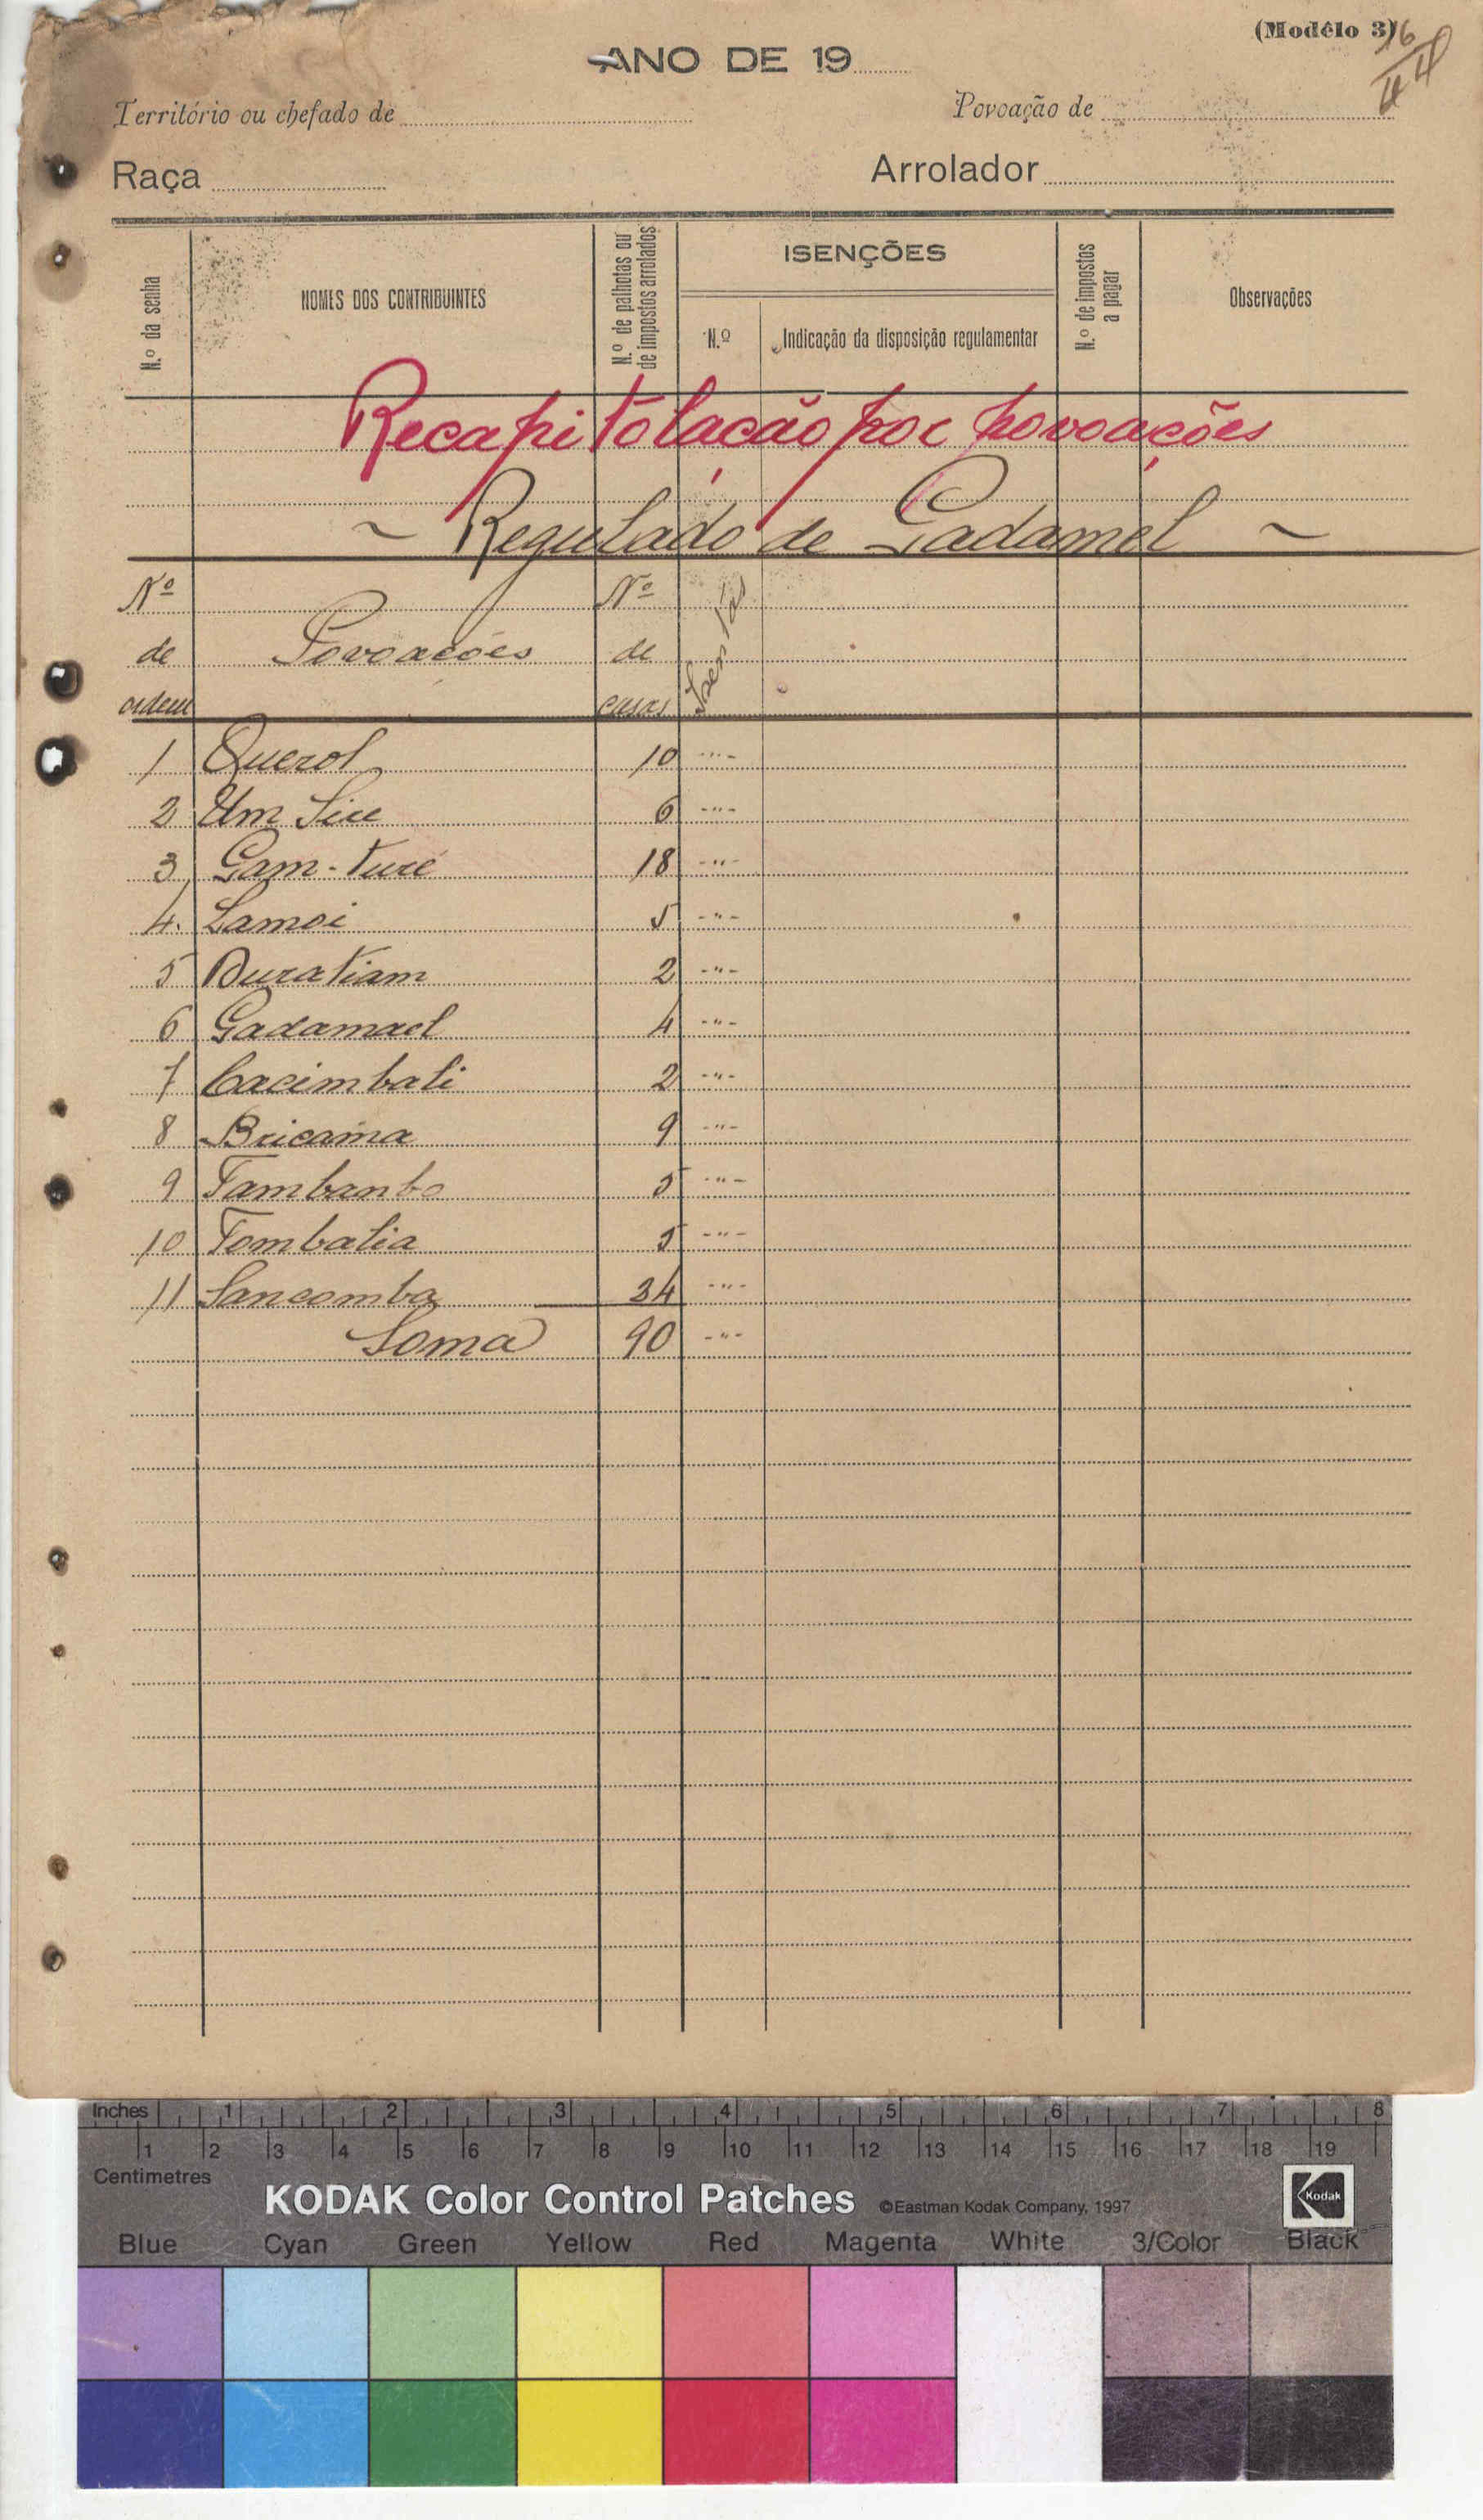 (Modêlo 3)
ANO DE 19
Território ou chefado de
Povoação de
Raça
Arrolador
N.º da senha
NOMES DOS CONTRIBUINTES
N.º de palhotas ou de impostos arrolados
ISENÇÕES
N.º
Indicação da disposição regulamentar
N.º de impostos a pagar
Observações
Recapitolação por povoações
~ Regulado de Gadamel ~
Nº de ordem
Povoações
Nº de casas
Isentas
1 Querol 10 -"-
2 Um Sire 6 -"-
3 Gam-Turé 18 -"-
4. Lamoi 5 -"-
5 Duratiam 2 -"-
6 Gadamael 4 -"-
7 Cacimbali 2 -"-
8 Bricama 9 -"-
9 Tambanto 5 -"-
10 Tombatia 5 -"-
11 Sancomba 24 -"-
Soma 90 -"-
Inches 1 2 3 4 5 6 7 8
1 2 3 4 5 6 7 8 9 10 11 12 13 14 15 16 17 18 19
Centimetres
KODAK Color Control Patches ©Eastman Kodak Company, 1997 Kodak
Blue Cyan Green Yellow Red Magenta White 3/Color Black